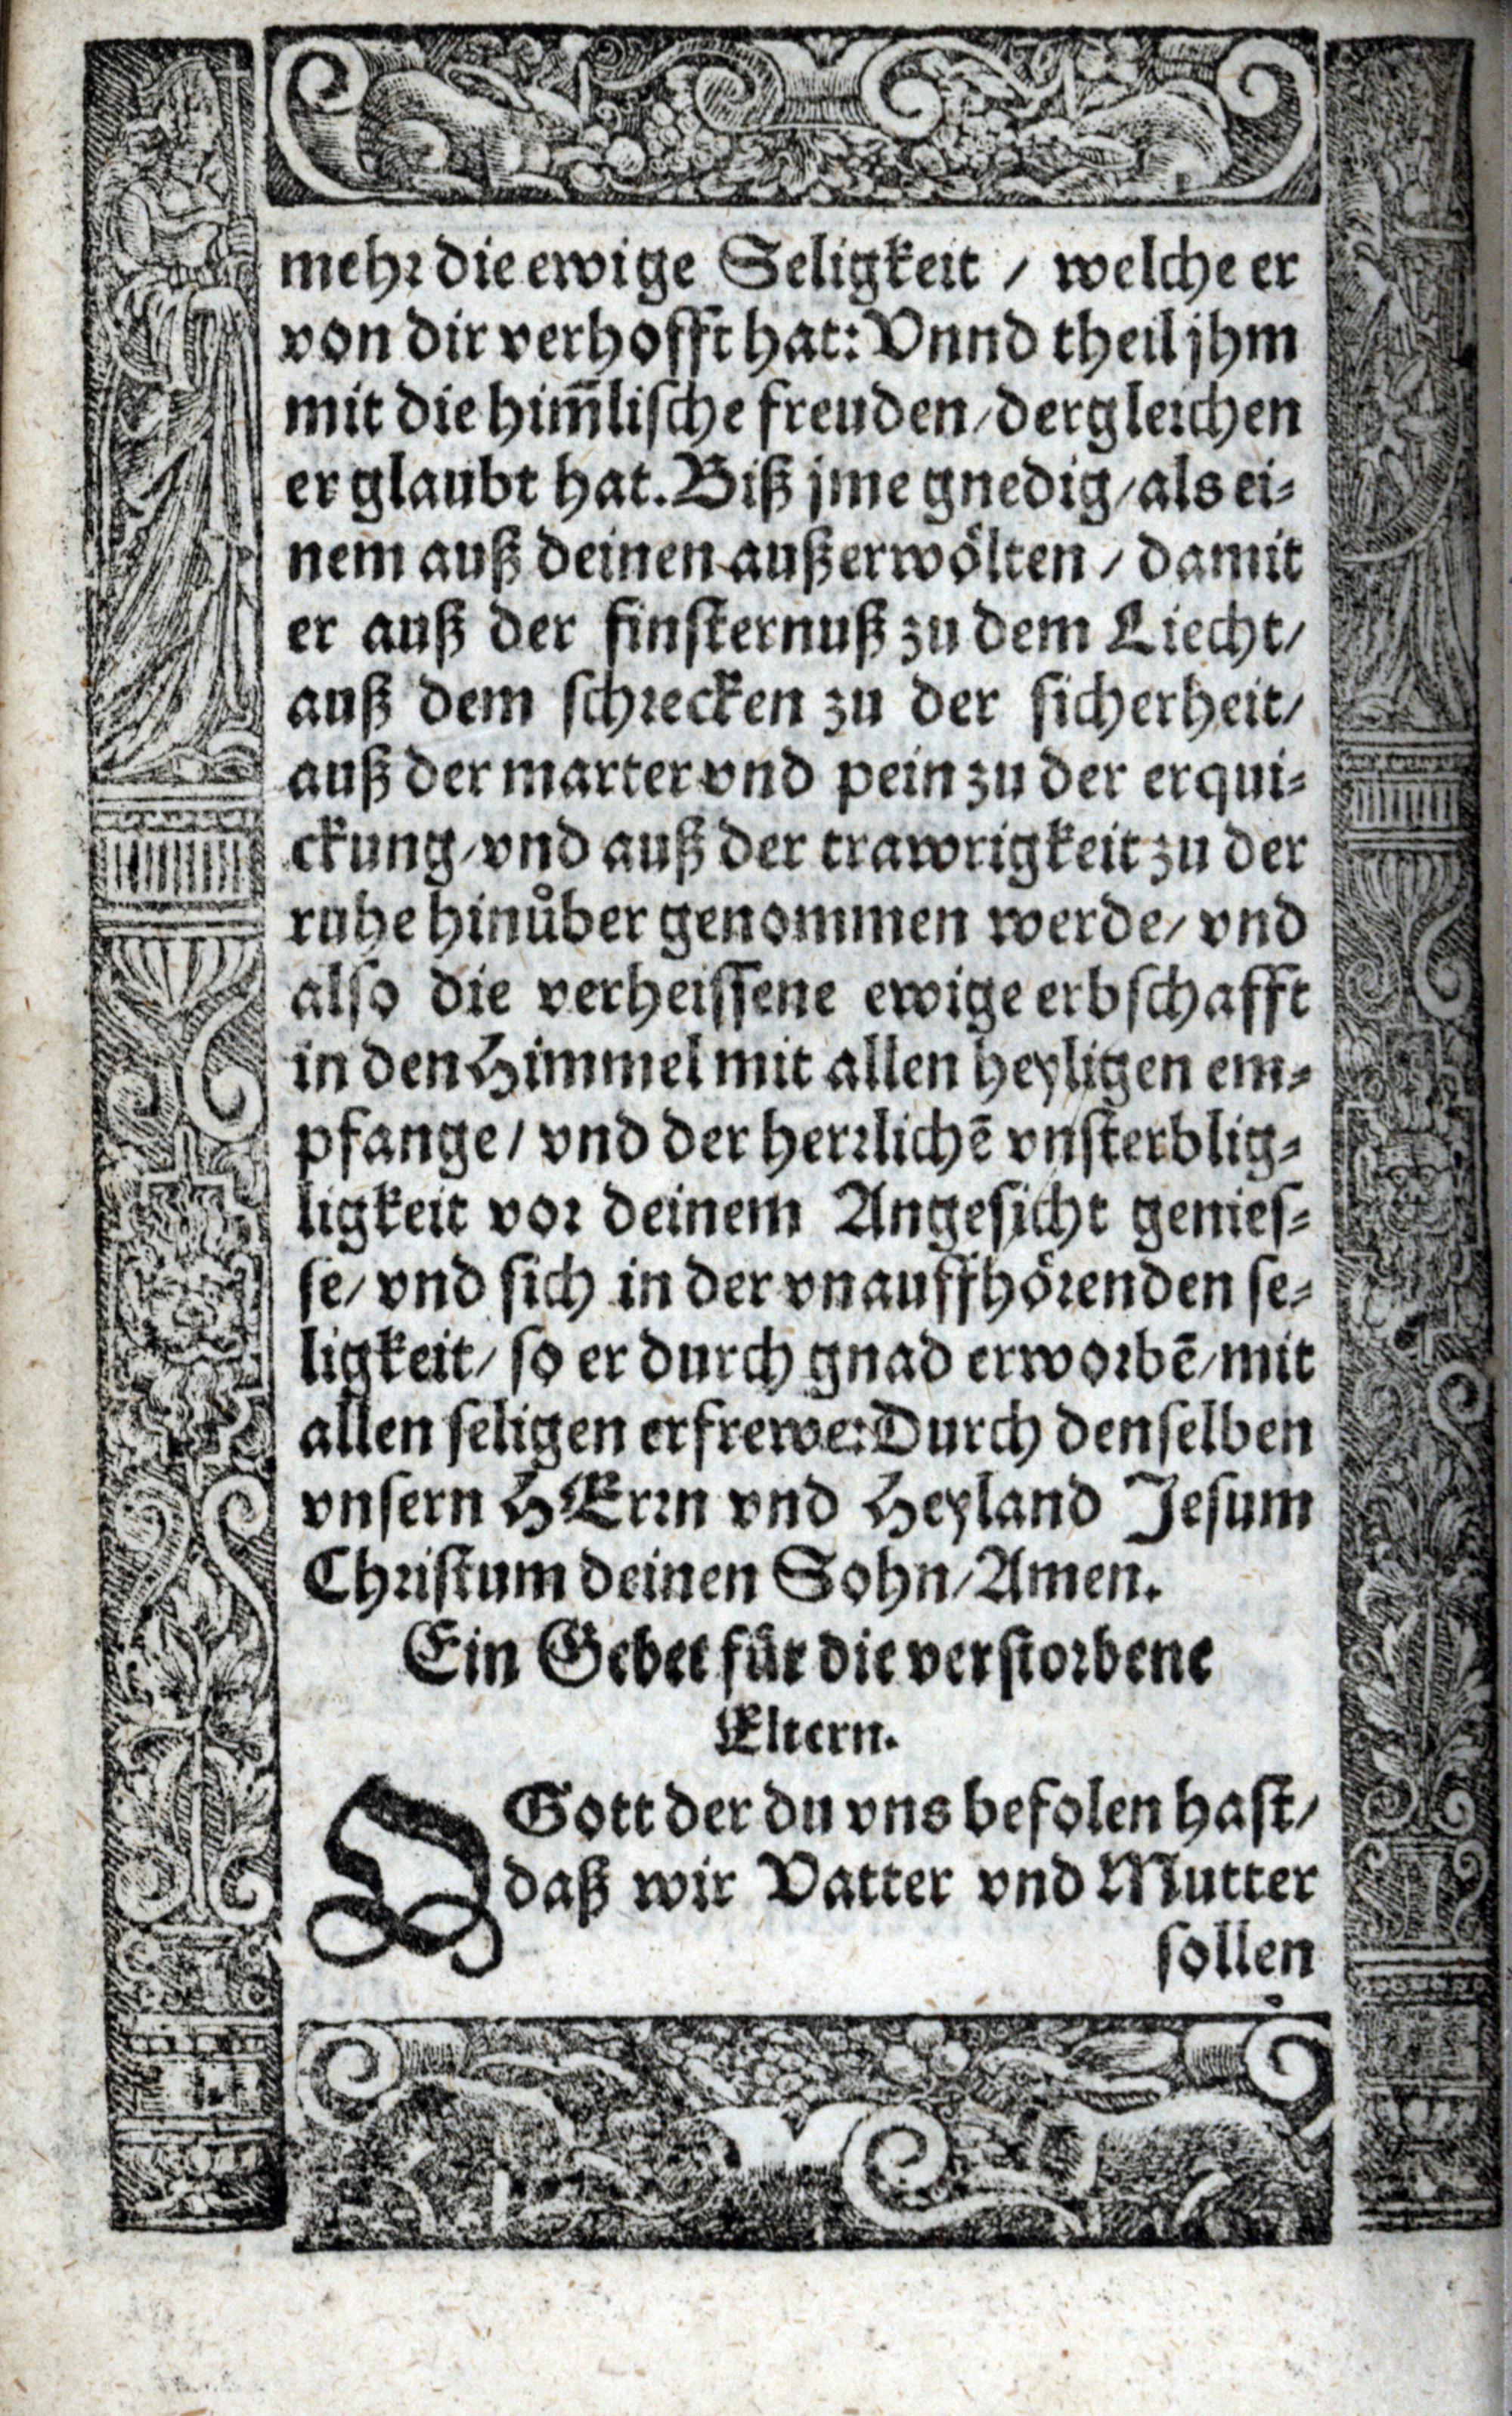 mehr die ewige Seligkeit / welche er
von dir verhofft hat: Vnnd theil jhm
mit die him̄lische freuden / dergleichen
er glaubt hat. Biß jme gnedig / als ei-
nem auß deinen außerwoͤlten / damit
er auß der finsternuß zu dem Liecht /
auß dem schrecken zu der sicherheit /
auß der marter vnd pein zu der erqui-
ckung / vnd auß der trawrigkeit zu der
ruhe hinuͤber genommen werde / vnd
also die verheissene ewige erbschafft
in den Himmel mit allen heyligen em-
pfange / vnd der herrlichē vnsterblig-
ligkeit vor deinem Angesicht genies-
se / vnd sich in der vnauffhoͤrenden se-
ligkeit / so er durch gnad erworbē / mit
allen seligen erfrewe: Durch denselben
vnsern HErrn vnd Heyland Jesum
Christum deinen Sohn / Amen.
Ein Gebet fuͤr die verstorbene
Eltern.
O Gott der du vns befolen hast /
daß wir Vatter vnd Mutter
sollen